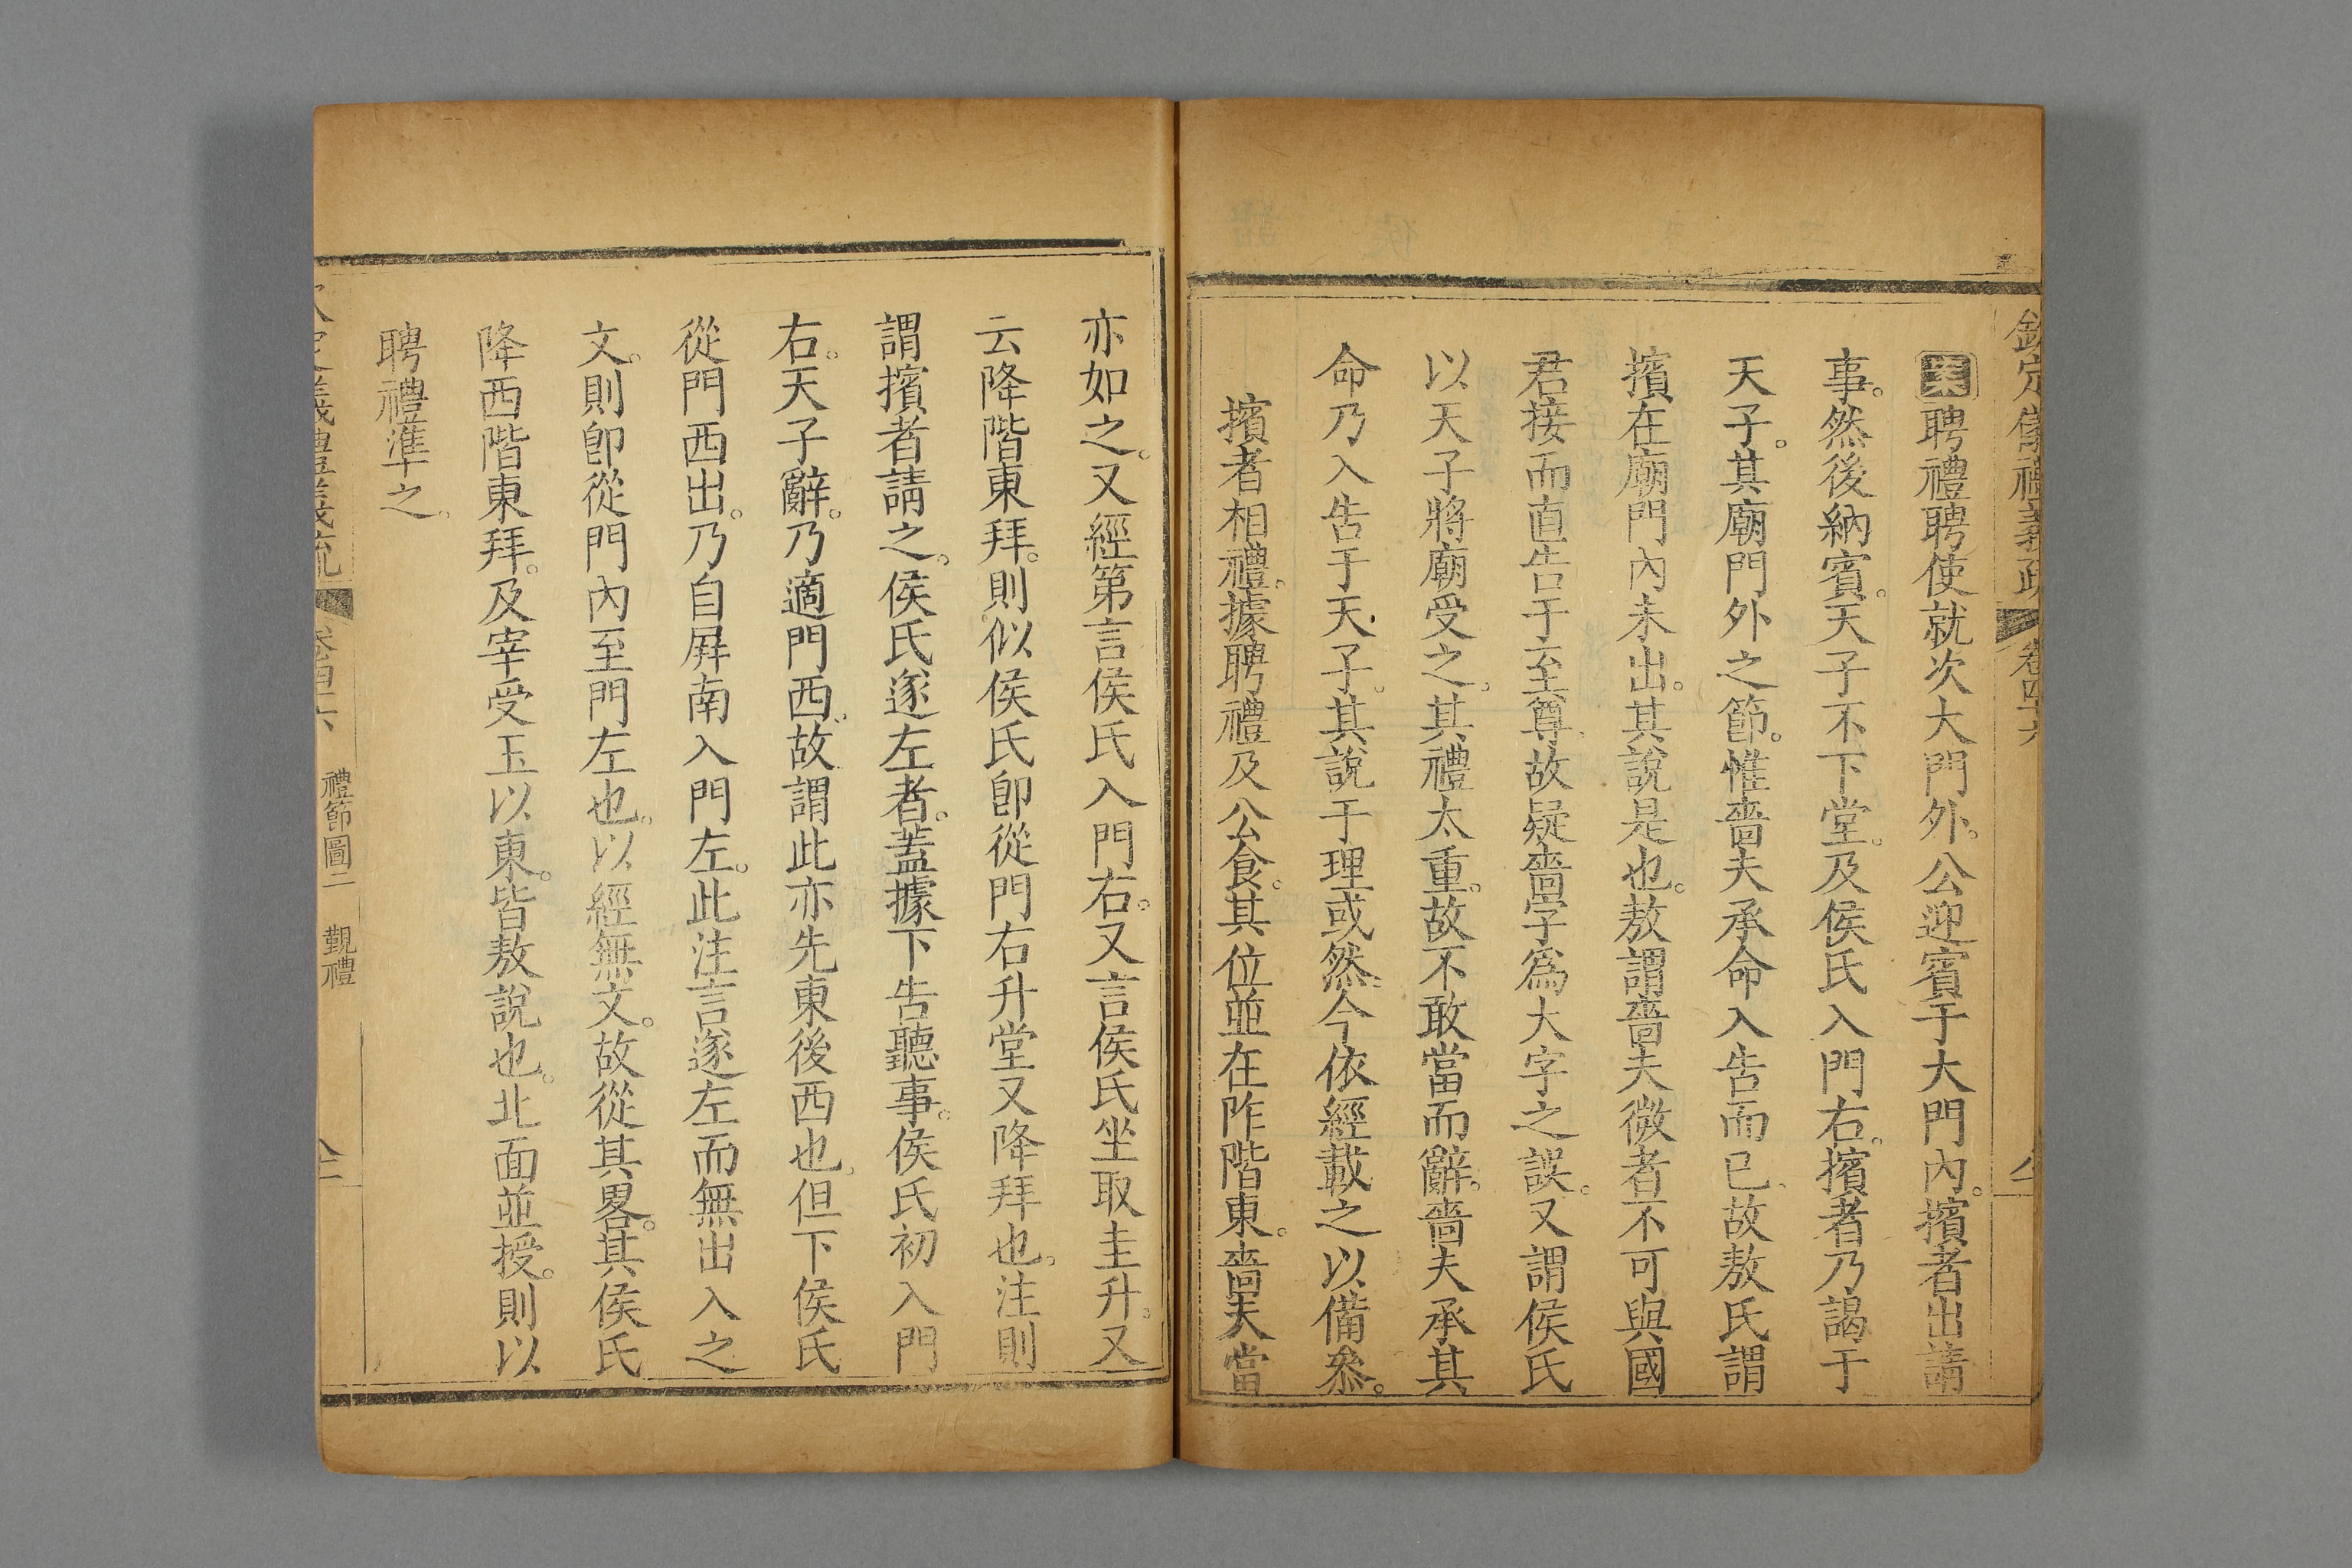 欽定儀禮義疏 卷四十六
案聘禮聘使就次大門外。公迎賓于大門內。擯者出請
事。然後納賓。天子不下堂。及侯氏入門右。擯者乃謁于
天子。其廟門外之節。惟嗇夫承命入告而已。故敖氏謂
擯在廟門內未出。其說是也。敖謂嗇夫微者不可與國
君接而直告于至尊。故疑嗇字為大字之誤。又謂侯氏
以天子將廟受之。其禮太重。故不敢當而辭。嗇夫承其
命乃入告于天子。其說于理或然。今依經載之以備叅。
擯者相禮。據聘禮及公食。其位並在阼階東。嗇夫當
亦如之。又經第言侯氏入門右。又言侯氏坐取圭升。又
云降階東拜。則似侯氏卽從門右升堂又降拜也。注則
謂擯者請之。侯氏遂左者。蓋據下告聽事。侯氏初入門
右。天子辭。乃適門西。故謂此亦先東後西也。但下侯氏
從門西出。乃自屛南入門左。此注言遂左而無出入之
文。則卽從門內至門左也。以經無文。故從其畧。其侯氏
降西階東拜。及宰受玉以東。皆敖說也。北面並授。則以
聘禮準之。
欽定儀禮義疏 卷四十六 禮節圖二 覲禮